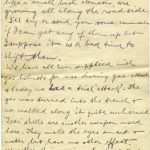 like a small bush clematis, are
growing all along the road side.
I'll try to send you some
if I can get any of them up but
suppose it is a bad time to
shift them.
We have all been supplied with
gas helmets for use during gas attacks
& today we had a trial attack. The
gas was turned into the trench &
we walked along it quite unharmed
Tear shells are another used
here. They make the eyes smart &
water but have no other effect